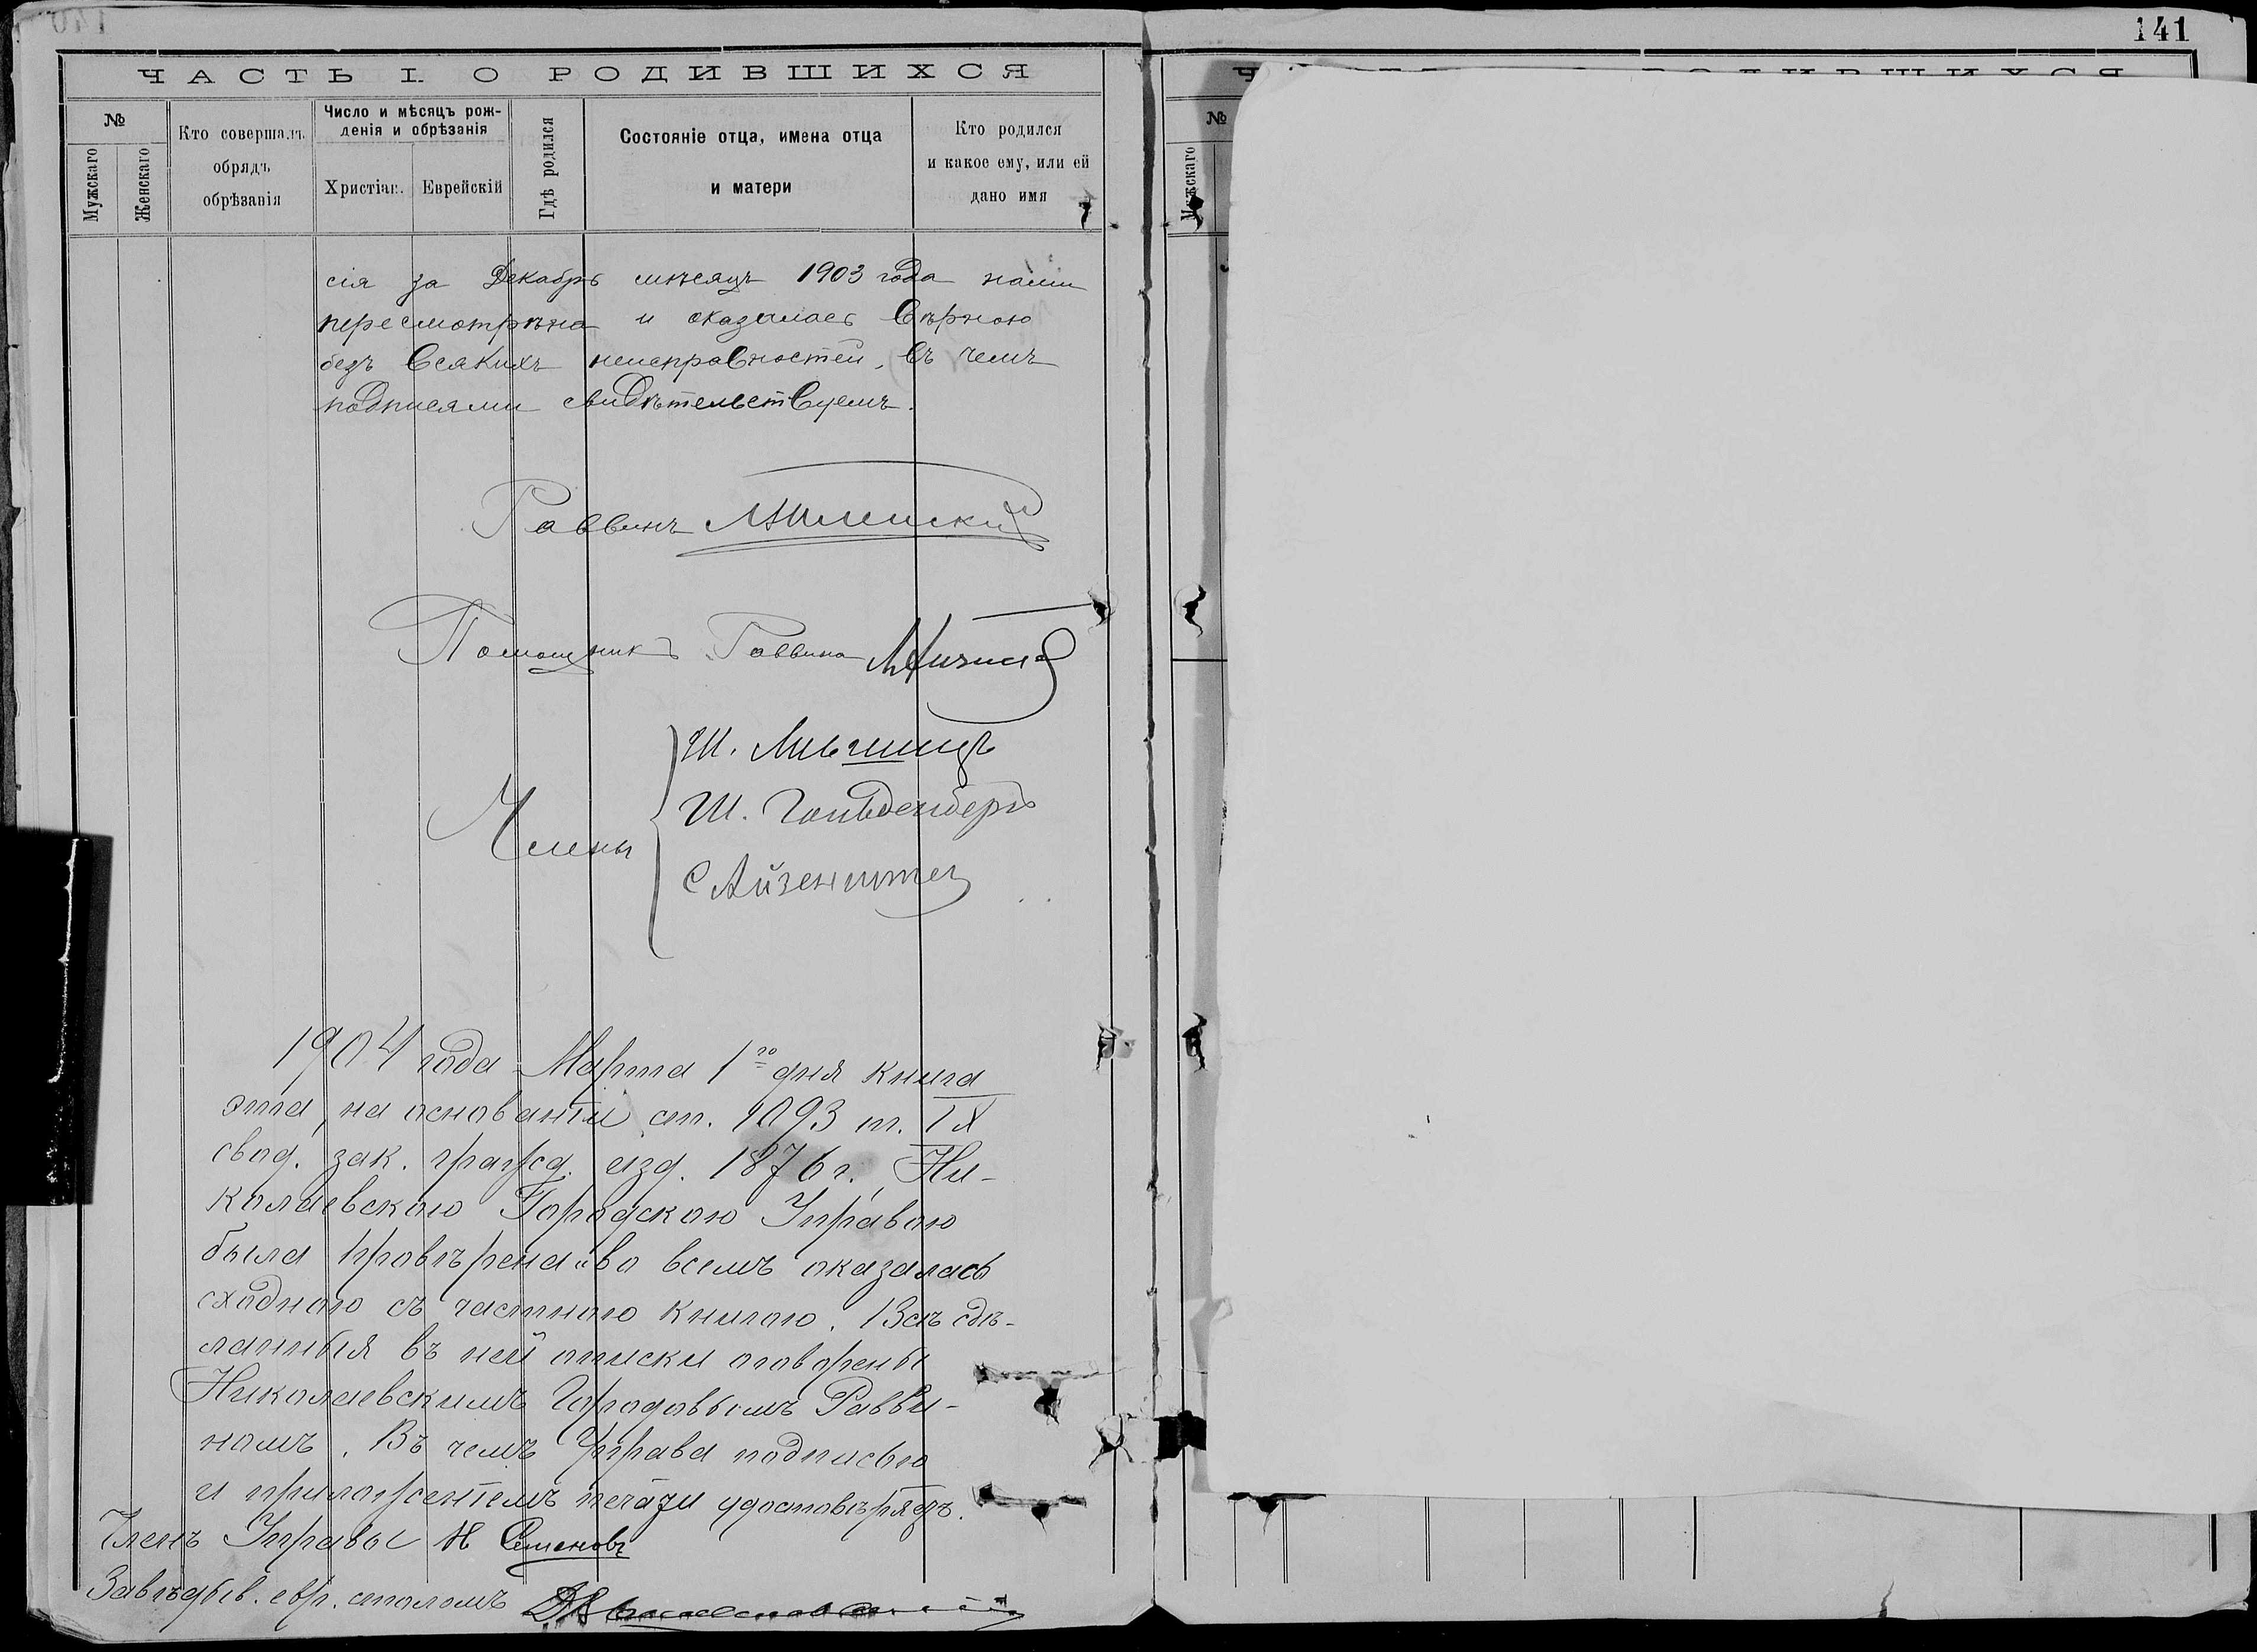 141
ЧАСТЬ I. О РОДИВШИХСЯ
№
Мужскаго
Женскаго
Кто совершалъ
обрядъ
обрѣзанія
Число и мѣсяцъ рож-
денія и обрѣзанія
Христіан.
Еврейскій
Гдѣ родился
Состояніе отца, имена отца
и матери
Кто родился
и какое ему, или ей
дано имя
№
Мужскаго
сія за Декабрь мѣсяцъ 1903 года нами
пересмотрѣна и оказалась вѣрною
безъ всякихъ неисправностей, въ чемъ
подписями свидѣтельствуемъ.
Раввинъ
Помощникъ Раввина
Члены
Ш. Лившицъ
Ш. Гольденбергъ
С Айзенштей
1904 года Марта 1го дня книга
эта, на основаніи ст. 1093 т. IX
свод. зак. гражд. изд. 1876 г., Ни-
колаевскою Городскою Управою
была провѣрена и во всемъ оказалась
сходною съ частною книгою. Всѣ сдѣ-
ланныя въ ней описки оговорены
Николаевскимъ Городовымъ Равви-
номъ. Въ чемъ Управа подписью
и приложеніемъ печати удостовѣряетъ.
Членъ Управы Н Семеновъ
Завѣдыв. евр. столомъ